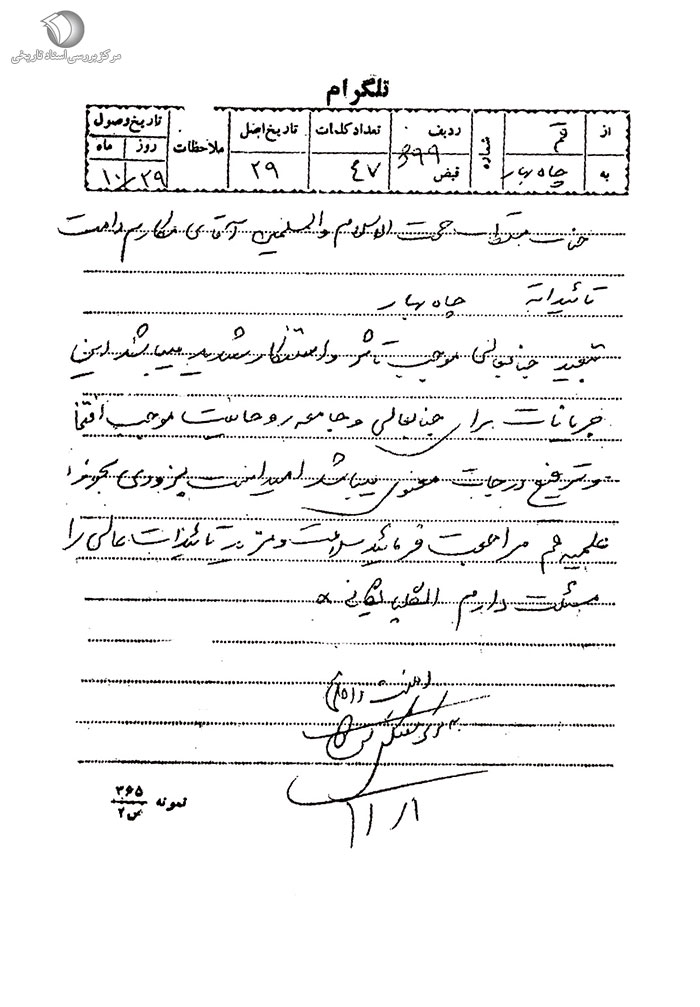 مرکز بررسی اسناد تاریخی
تلگرام
از قم شماره ردیف ۳۹۹ تعداد کلمات تاریخ اصل ملاحظات تاریخ وصول
به چاه بهار قبض ۴۷ ۲۹ روز ماه
۲۹/۱۰
جناب مستطاب حجت الاسلام والمسلمین آقای مکارم دامت
تائیداته چاه بهار
تبعید جنابعالی موجب تاثر و استنکار شدید میباشد این
جریانات برای جنابعالی و جامعه روحانیت موجب افتخار
و ترفیع درجات معنوی میباشد امید است بزودی بحوزه
علمیه قم مراجعت فرمائید سلامت و مزید تائیدات عالی را
مسئلت دارم الگلپایگانی
۱۱/۱
نمونه ۳۶۵
س ۲